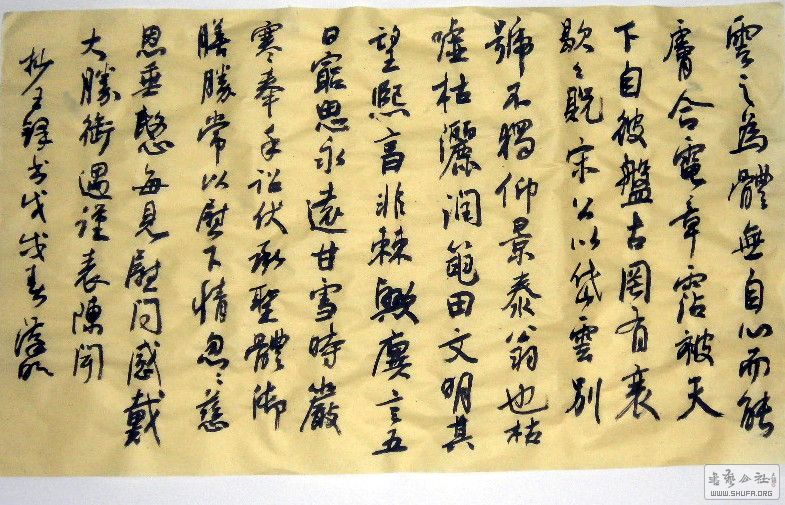 雲之為體無自心而能
膚合電章霑被天
下自彼盤古罔有衰
歇々既宋公以岱雲別
號不獨仰景泰翁也枯
嘘枯灑潤範田文明其
望熙言非棘歟賡言五
日寵思永遠甘雪時嚴
寒奉手詔伏承聖體御
膳勝常以慰下情忽々慈
恩垂慜每見慰問感戴
大勝銜遇謹表陳聞
抄王鐸書戊戌春
書法公社
WWW.SHUFA.ORG